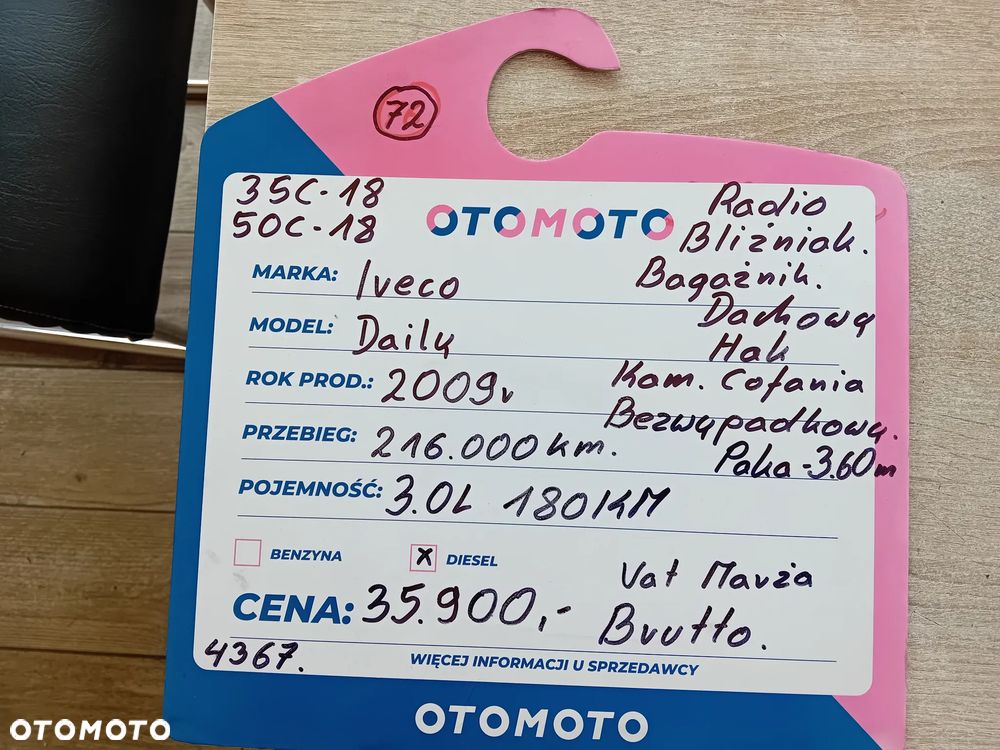 72
35C-18
50C-18
OTOMOTO
Radio
Bliźniak.
MARKA: Iveco
Bagażnik.
Dachowy
MODEL: Daily
Hak
ROK PROD.: 2009r
Kam. Cofania
Bezwypadkowy.
PRZEBIEG: 216.000 km.
Paka - 3.60m
POJEMNOŚĆ: 3.0L 180KM
BENZYNA
X DIESEL
Vat Marża
CENA: 35.900,-
Brutto.
4367.
WIĘCEJ INFORMACJI U SPRZEDAWCY
OTOMOTO
OTOMOTO